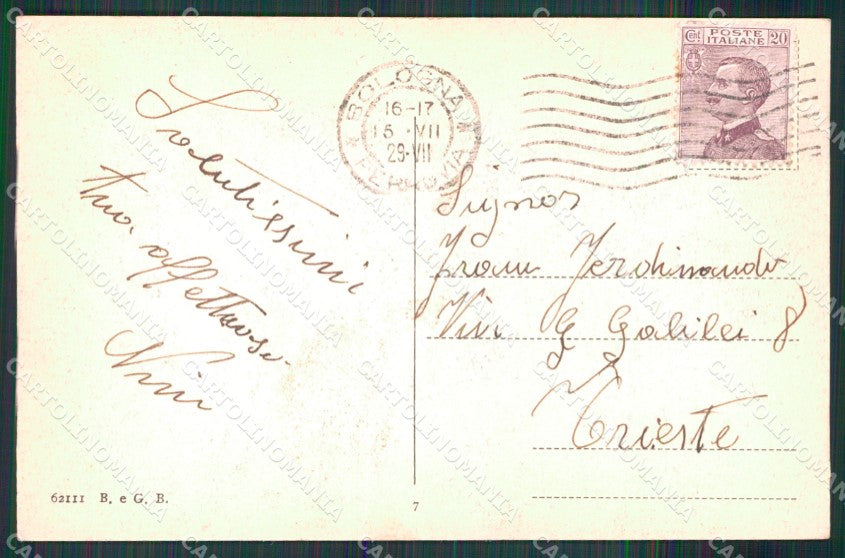 Salutissimi
tuo affettuoso
Nini
BOLOGNA
16-17
15 · VII
29·VII
FERROVIA
POSTE
ITALIANE
Cent 20
Signor
Ferdinando
Via G Galilei 8
Trieste
62111 B. e G. B.
7
CARTOLINOMANIA